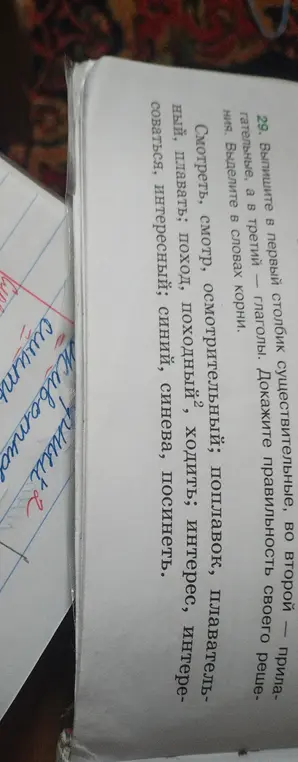 29. Выпишите в первый столбик существительные, во второй — прила-
гательные, а в третий — глаголы. Докажите правильность своего реше-
ния. Выделите в словах корни.
Смотреть, смотр, осмотрительный; поплавок, плаватель-
ный, плавать; поход, походный², ходить; интерес, интере-
соваться, интересный; синий, синева, посинеть.